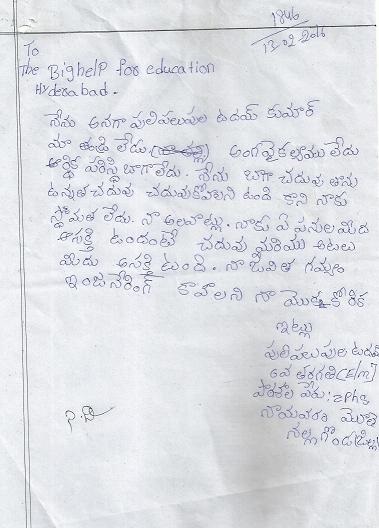 1846
13-02-2016
To
The BigHelP for education
Hyderabad.
నేను అనగా పులిపలుపుల ఉదయ్ కుమార్
మా తండ్రి లేడు. అంగవైకల్యము లేదు
ఆర్థిక పరిస్థి బాగాలేదు. నేను బాగా చదువు తాను
ఉన్నతచదువు చదువుకోవాలని ఉంది కాని నాకు
స్థోమత లేదు. నా అలవాట్లు. నాకు ఏ పనుల మీద
ఆసక్తి ఉందంటే చదువు మరియు ఆటలు
మీదు ఆసక్తి ఉంది. నా జీవిత గమ్యం
ఇంజనీరింగ్ కావాలని నా మొక్క కోరిక
ఇట్లు
పులిపలుపుల ఉదయ
6వ తరగతి [E/m]
పాఠశాల పేరు: zphs
నల్లగొండ (జిల్లా
P.D